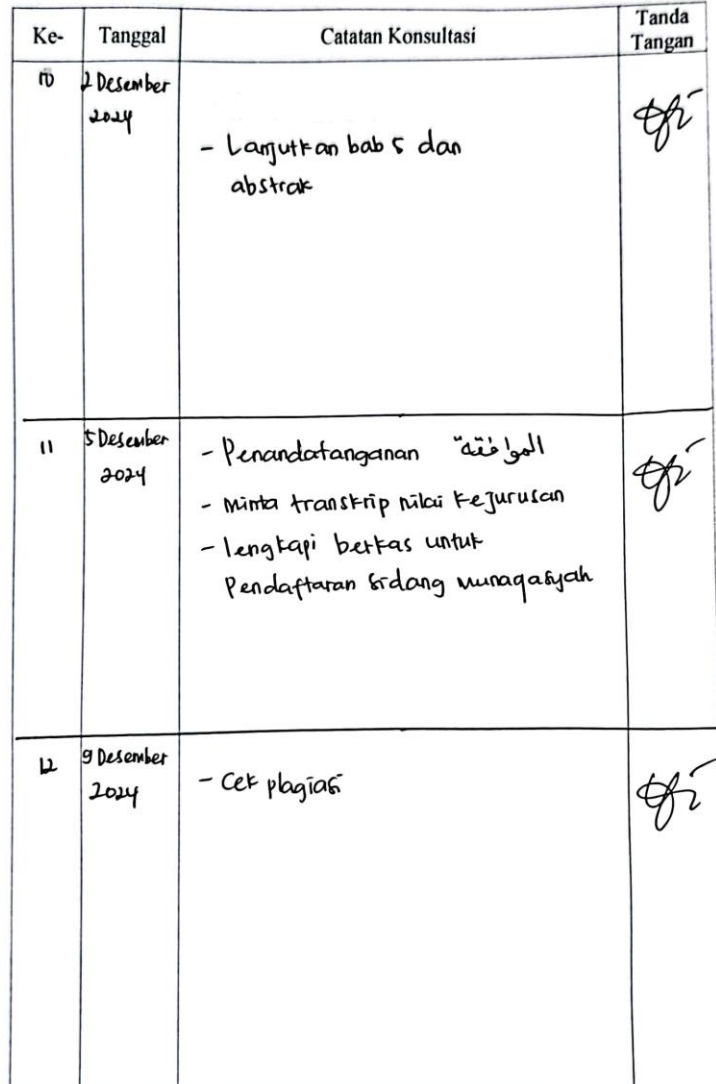 Ke- Tanggal Catatan Konsultasi Tanda
Tangan
10 2 Desember
2024
- Lanjutkan bab 5 dan
abstrak
11 5 Desember - Penandatanganan "الموافقة"
2024
- Minta transkrip nilai kejurusan
- lengkapi berkas untuk
Pendaftaran sidang munaqasyah
12 9 Desember - Cek plagiasi
2024